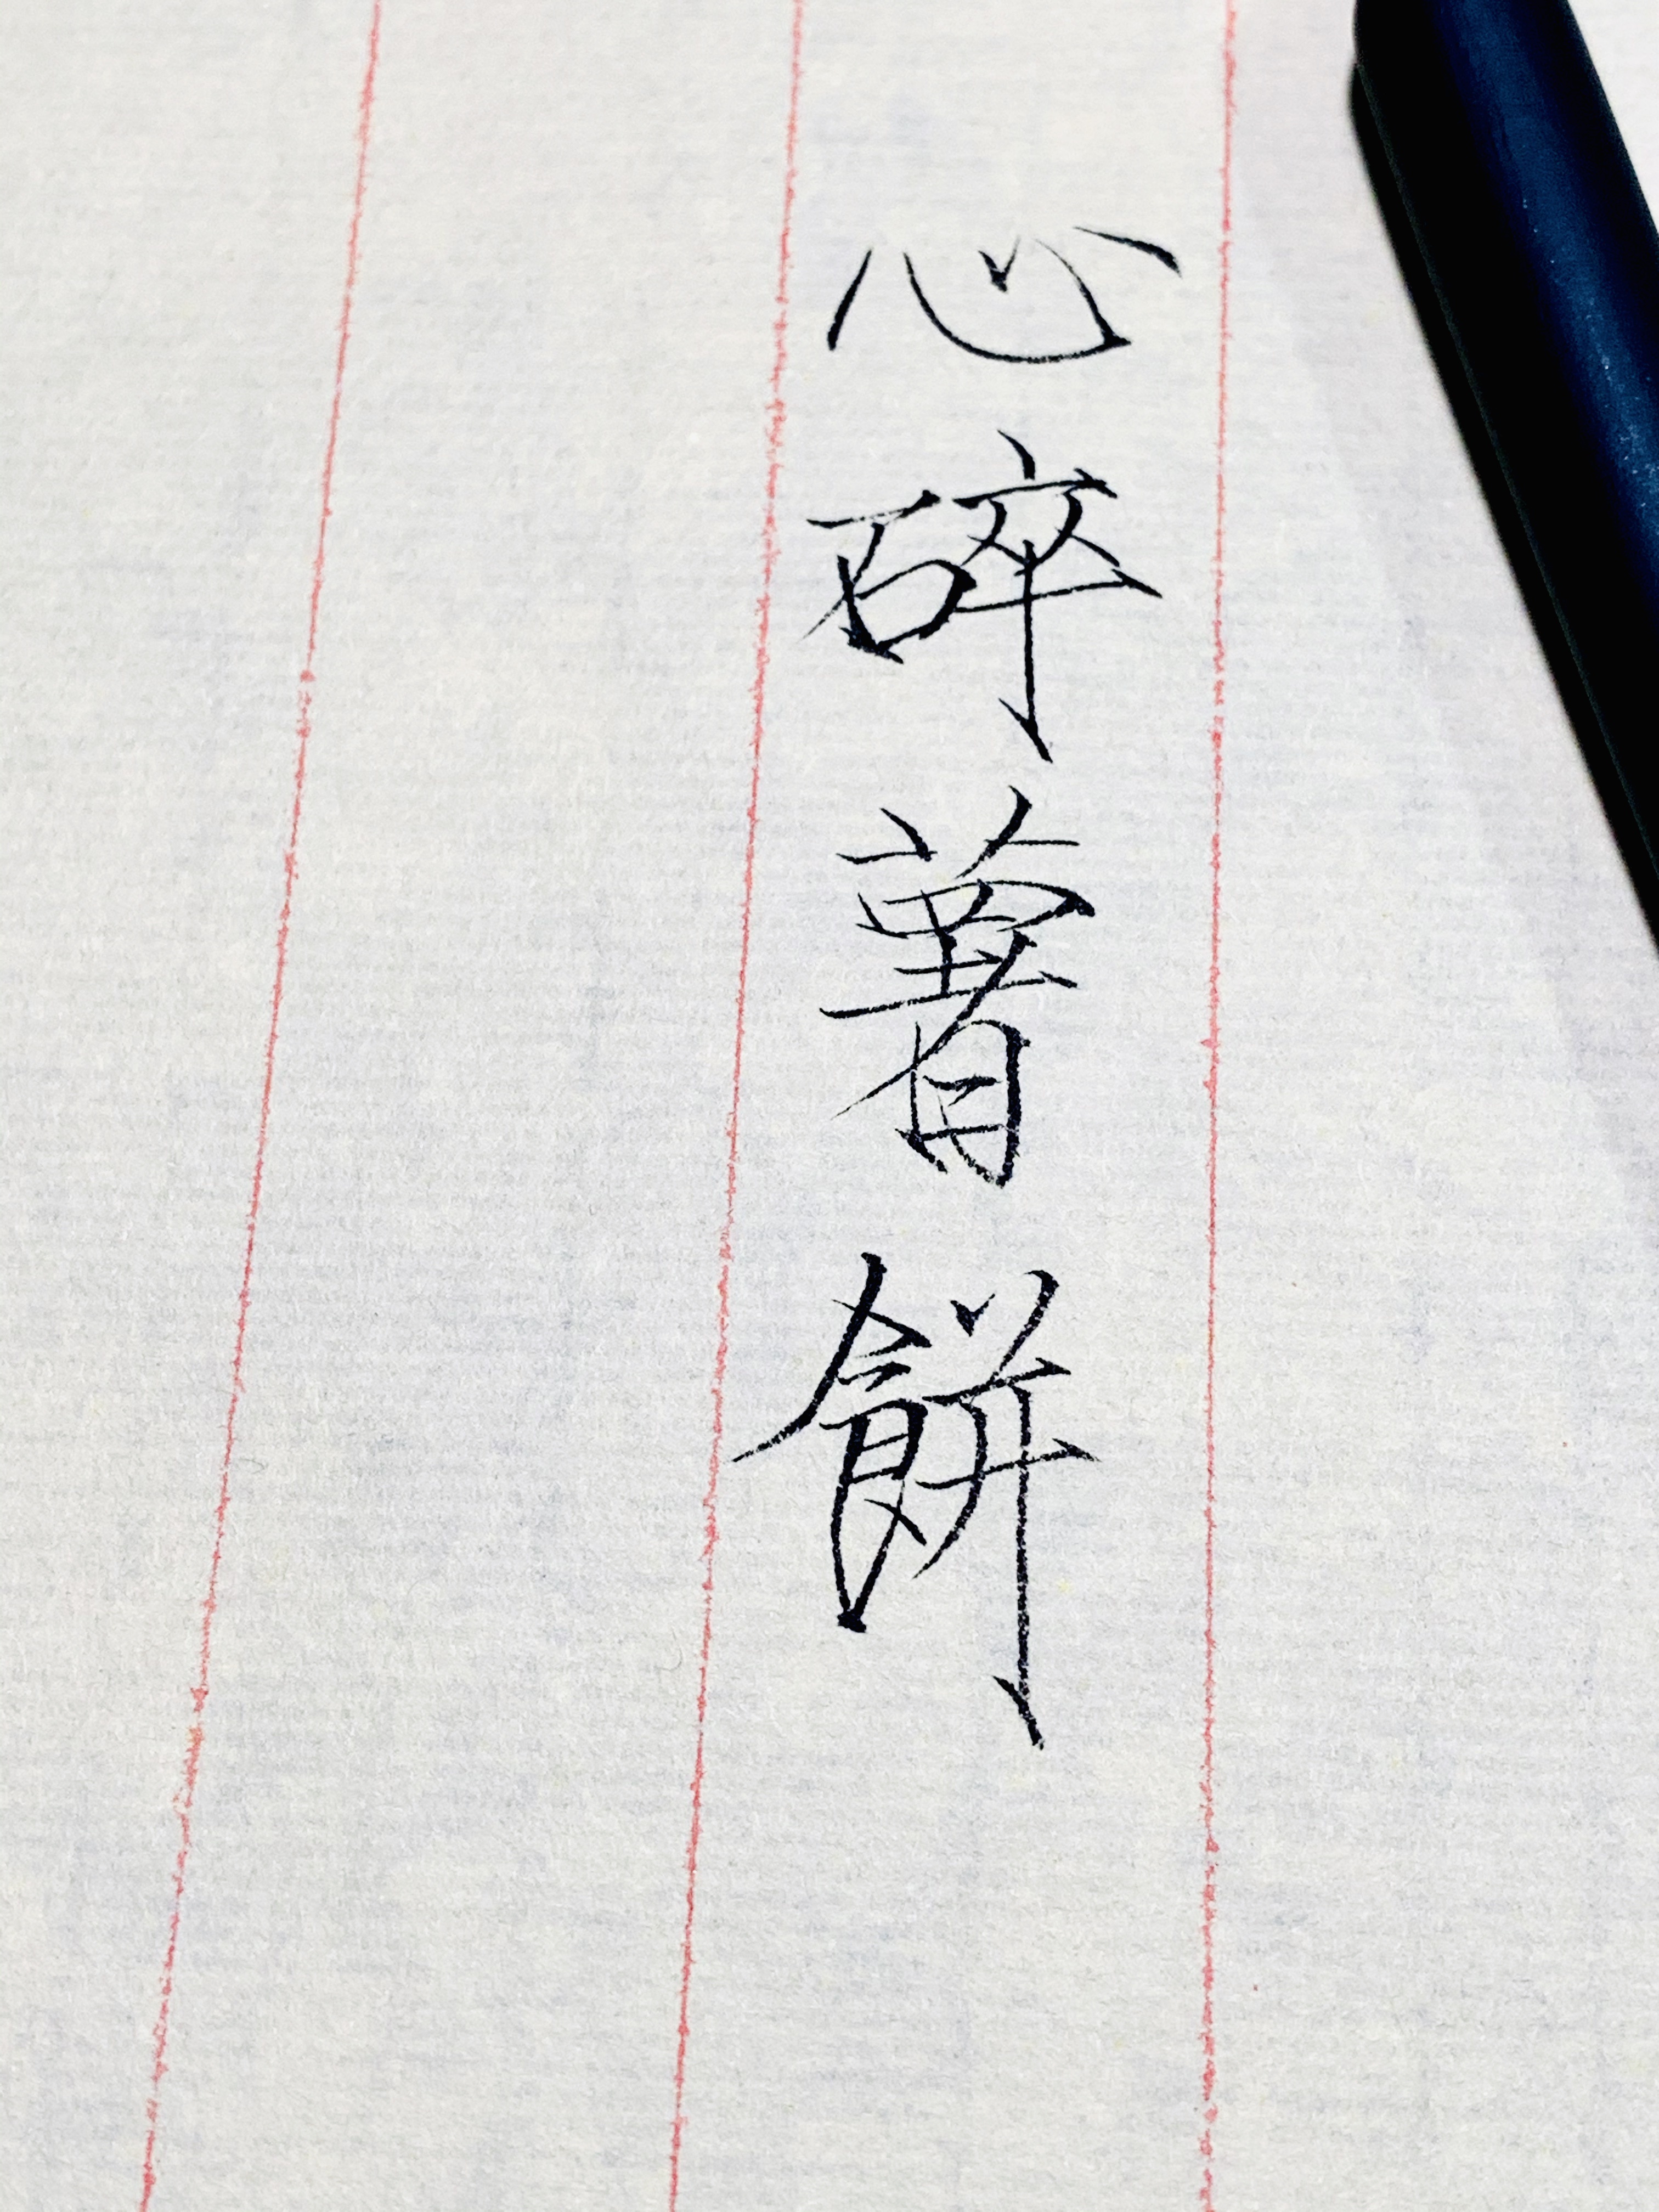 心碎薯餅